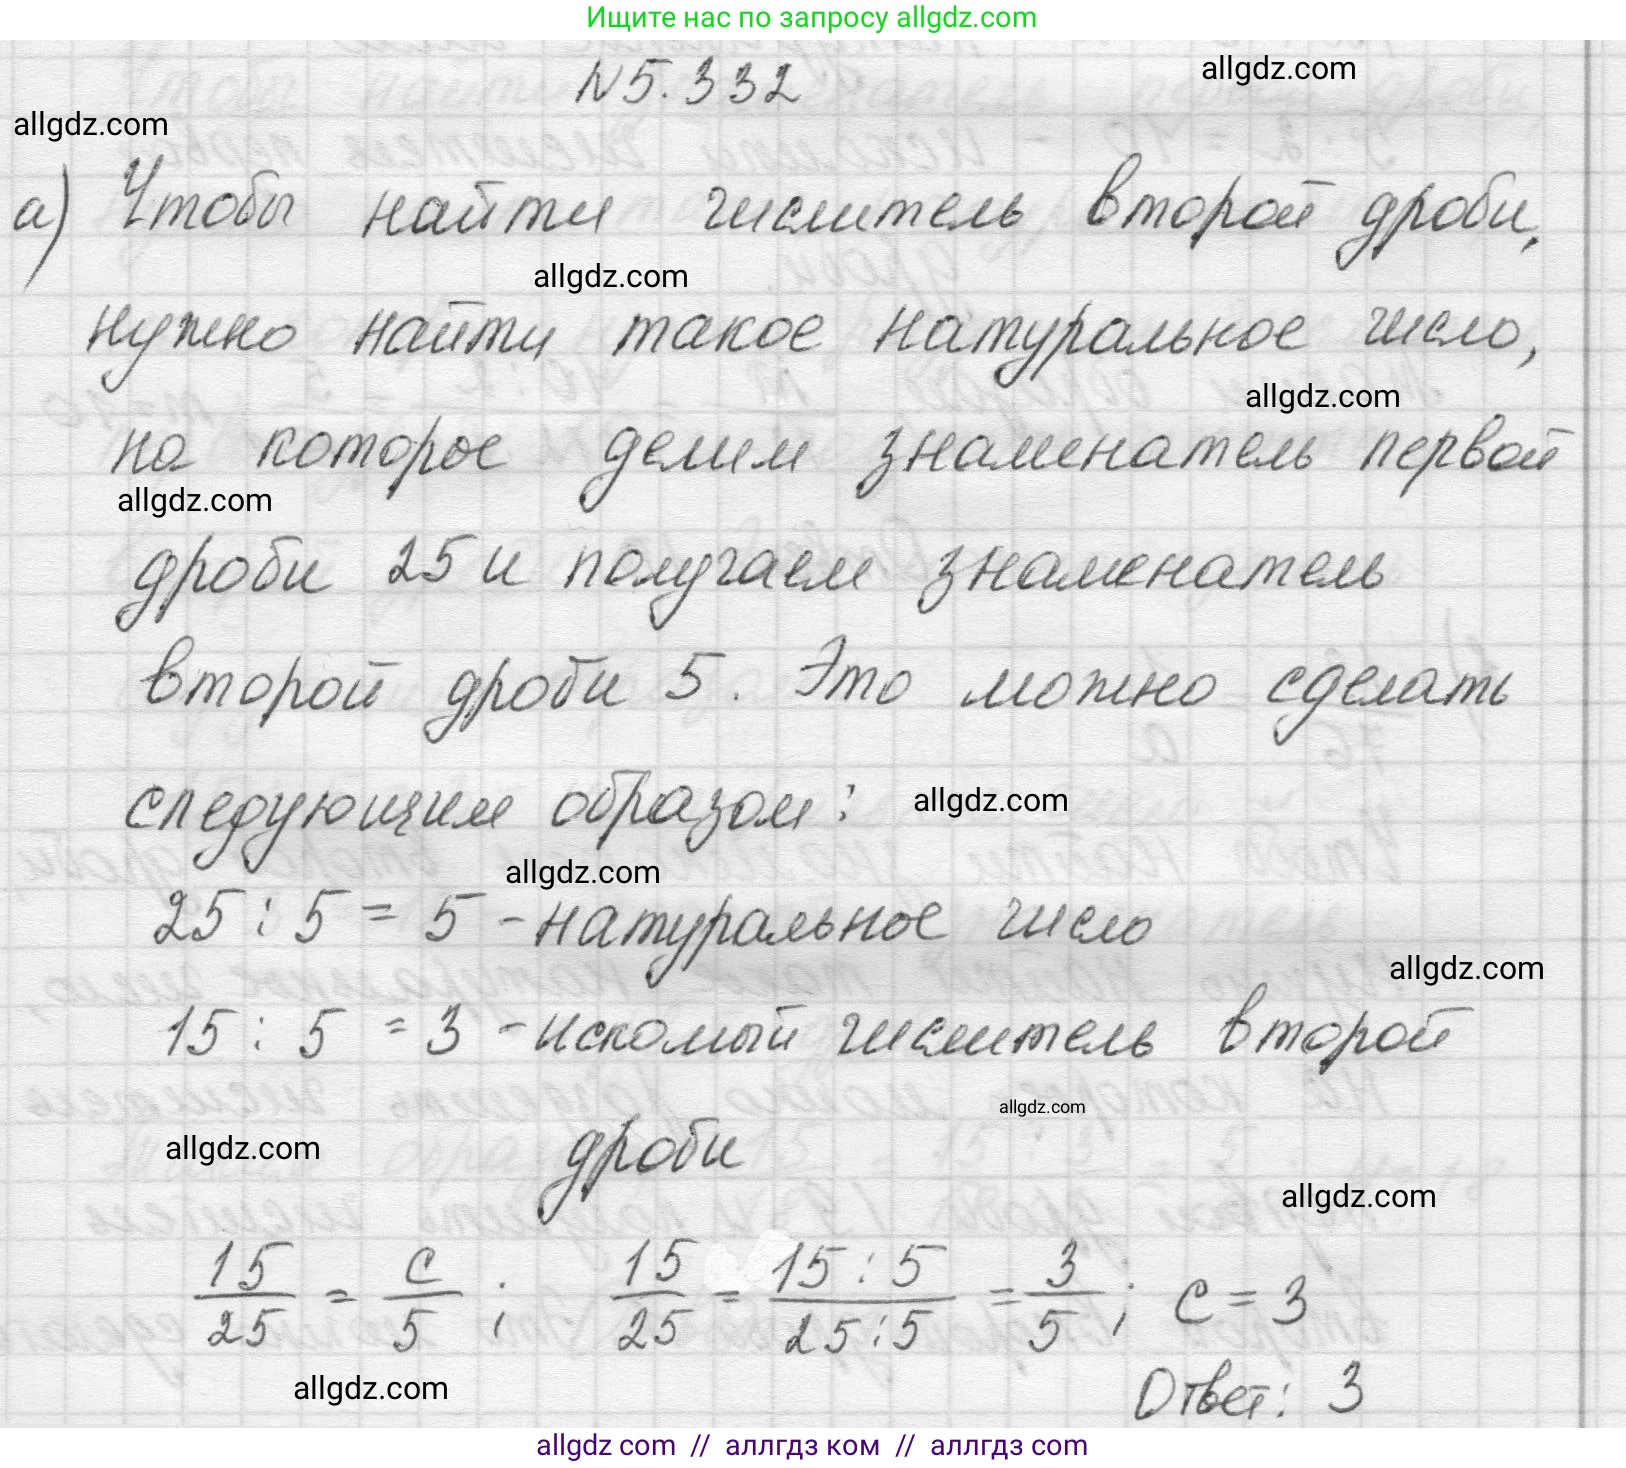 Ищите нас по запросу allgdz.com
N5.332
allgdz.com
allgdz.com
а) Чтобы найти числитель второй дроби,
allgdz.com
нужно найти такое натуральное число,
allgdz.com
на которое делим знаменатель первой
allgdz.com
дроби 25 и получаем знаменатель
второй дроби 5. Это можно сделать
следующим образом:
allgdz.com
allgdz.com
25 : 5 = 5 - натуральное число
allgdz.com
15 : 5 = 3 - искомый числитель второй
allgdz.com
дроби
allgdz.com
allgdz.com
15/25 = c/5 ; 15/25 = 15:5/25:5 = 3/5 ; c = 3
allgdz.com
Ответ: 3
allgdz com // аллгдз ком // аллгдз com